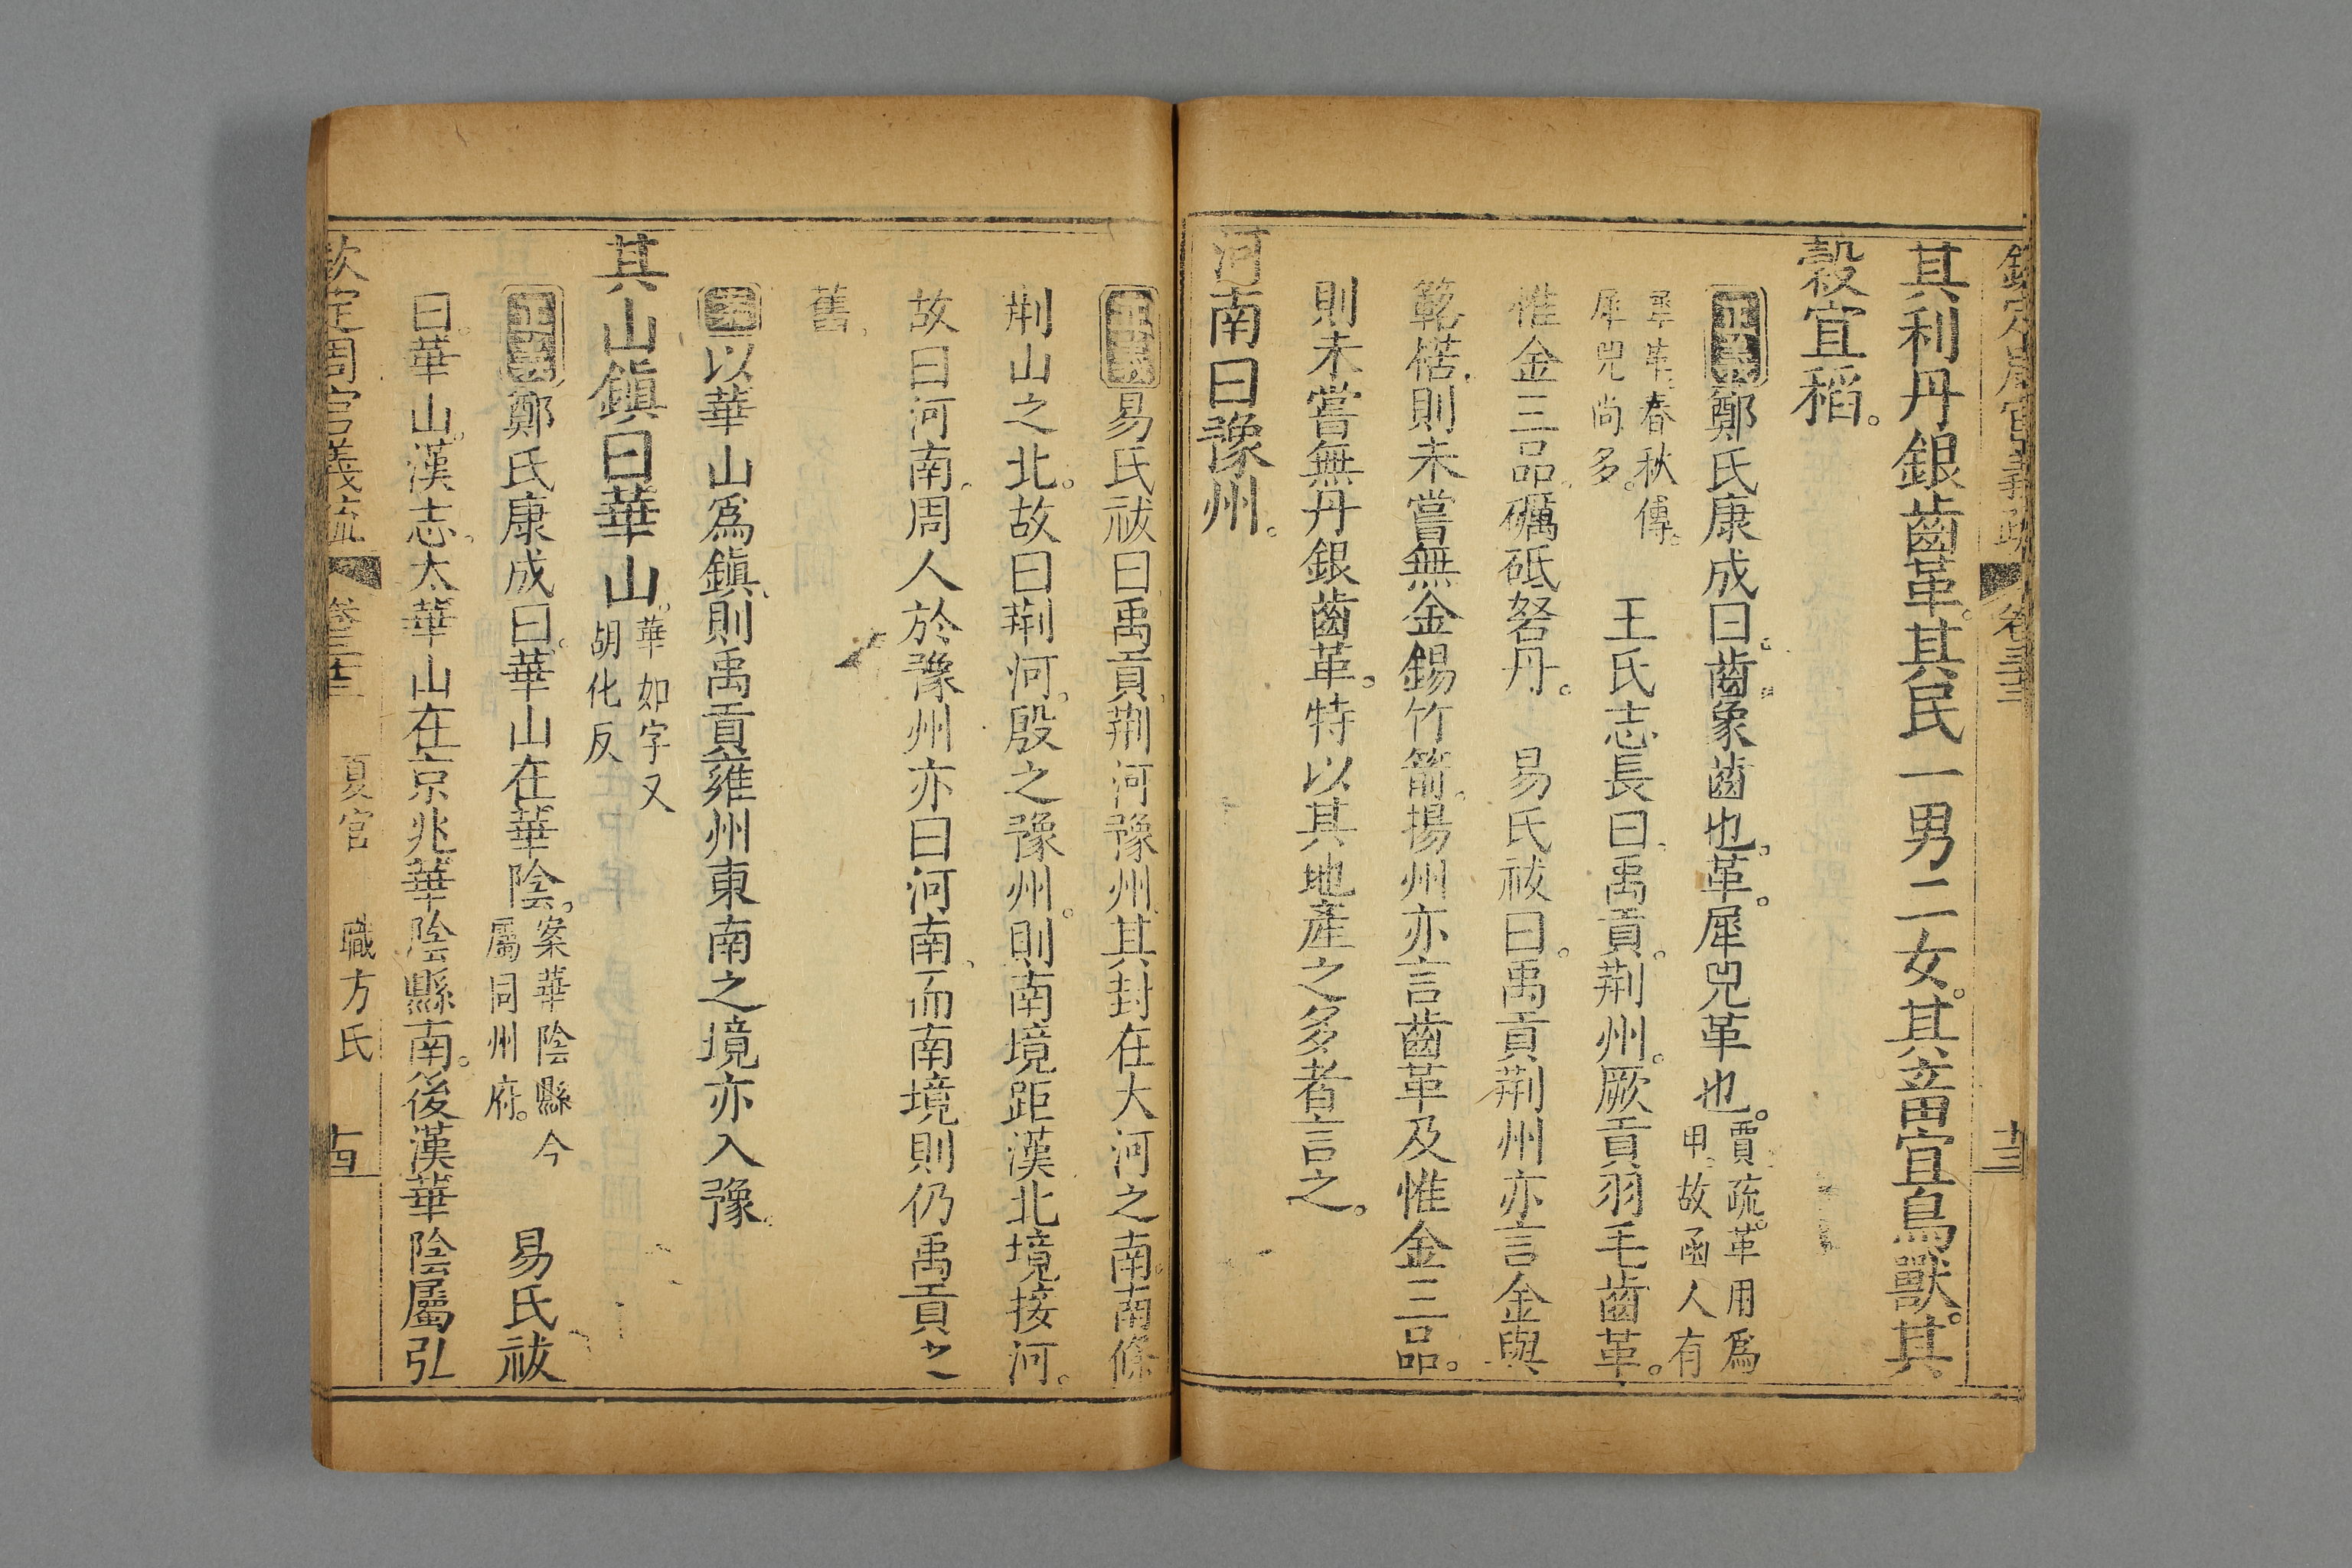 欽定周官義疏 卷三十三
其利丹銀齒革。其民一男二女。其畜宜鳥獸。其
穀宜稻。
正義 鄭氏康成曰。齒象齒也。革犀兕革也。賈疏。革用爲甲。故函人有
犀兕尚多。王氏志長曰。禹貢。荆州。厥貢羽毛齒革。
惟金三品。礪砥砮丹。易氏祓曰。禹貢荆州亦言金與
則未嘗無金錫竹箭。揚州亦言齒革及惟金三品。
則未嘗無丹銀齒革。特以其地產之多者言之。
河南曰豫州。
正義 易氏祓曰禹貢荆河豫州。其封在大河之南。南條
荆山之北。故曰荆河。殷之豫州。則南境距漢北境接河。
故曰河南。周人於豫州亦曰河南。而南境則仍禹貢之
舊。
以華山爲鎭則禹貢雍州東南之境亦入豫。
其山鎭曰華山。華如字又胡化反
正義 鄭氏康成曰。華山在華陰。案華陰縣今屬同州府。易氏祓
曰。華山。漢志。太華山在京兆華陰縣南。後漢華陰屬弘
欽定周官義疏 夏官 職方氏